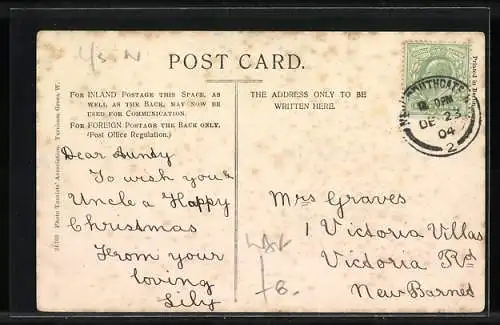 1/3 N
POST CARD.
FOR INLAND POSTAGE THIS SPACE, AS
WELL AS THE BACK, MAY NOW BE
USED FOR COMMUNICATION.
FOR FOREIGN POSTAGE THE BACK ONLY.
(Post Office Regulation.)
THE ADDRESS ONLY TO BE
WRITTEN HERE.
SOUTHGATE
DE 23
04
2
Printed in
Photo Tourists' Association, Turnham Green W.
Dear Aundy
To wish you &
Uncle a Happy
Christmas
From your
loving
Lily
Mrs Graves
1 Victoria Villas
Victoria Rd
New Barnet